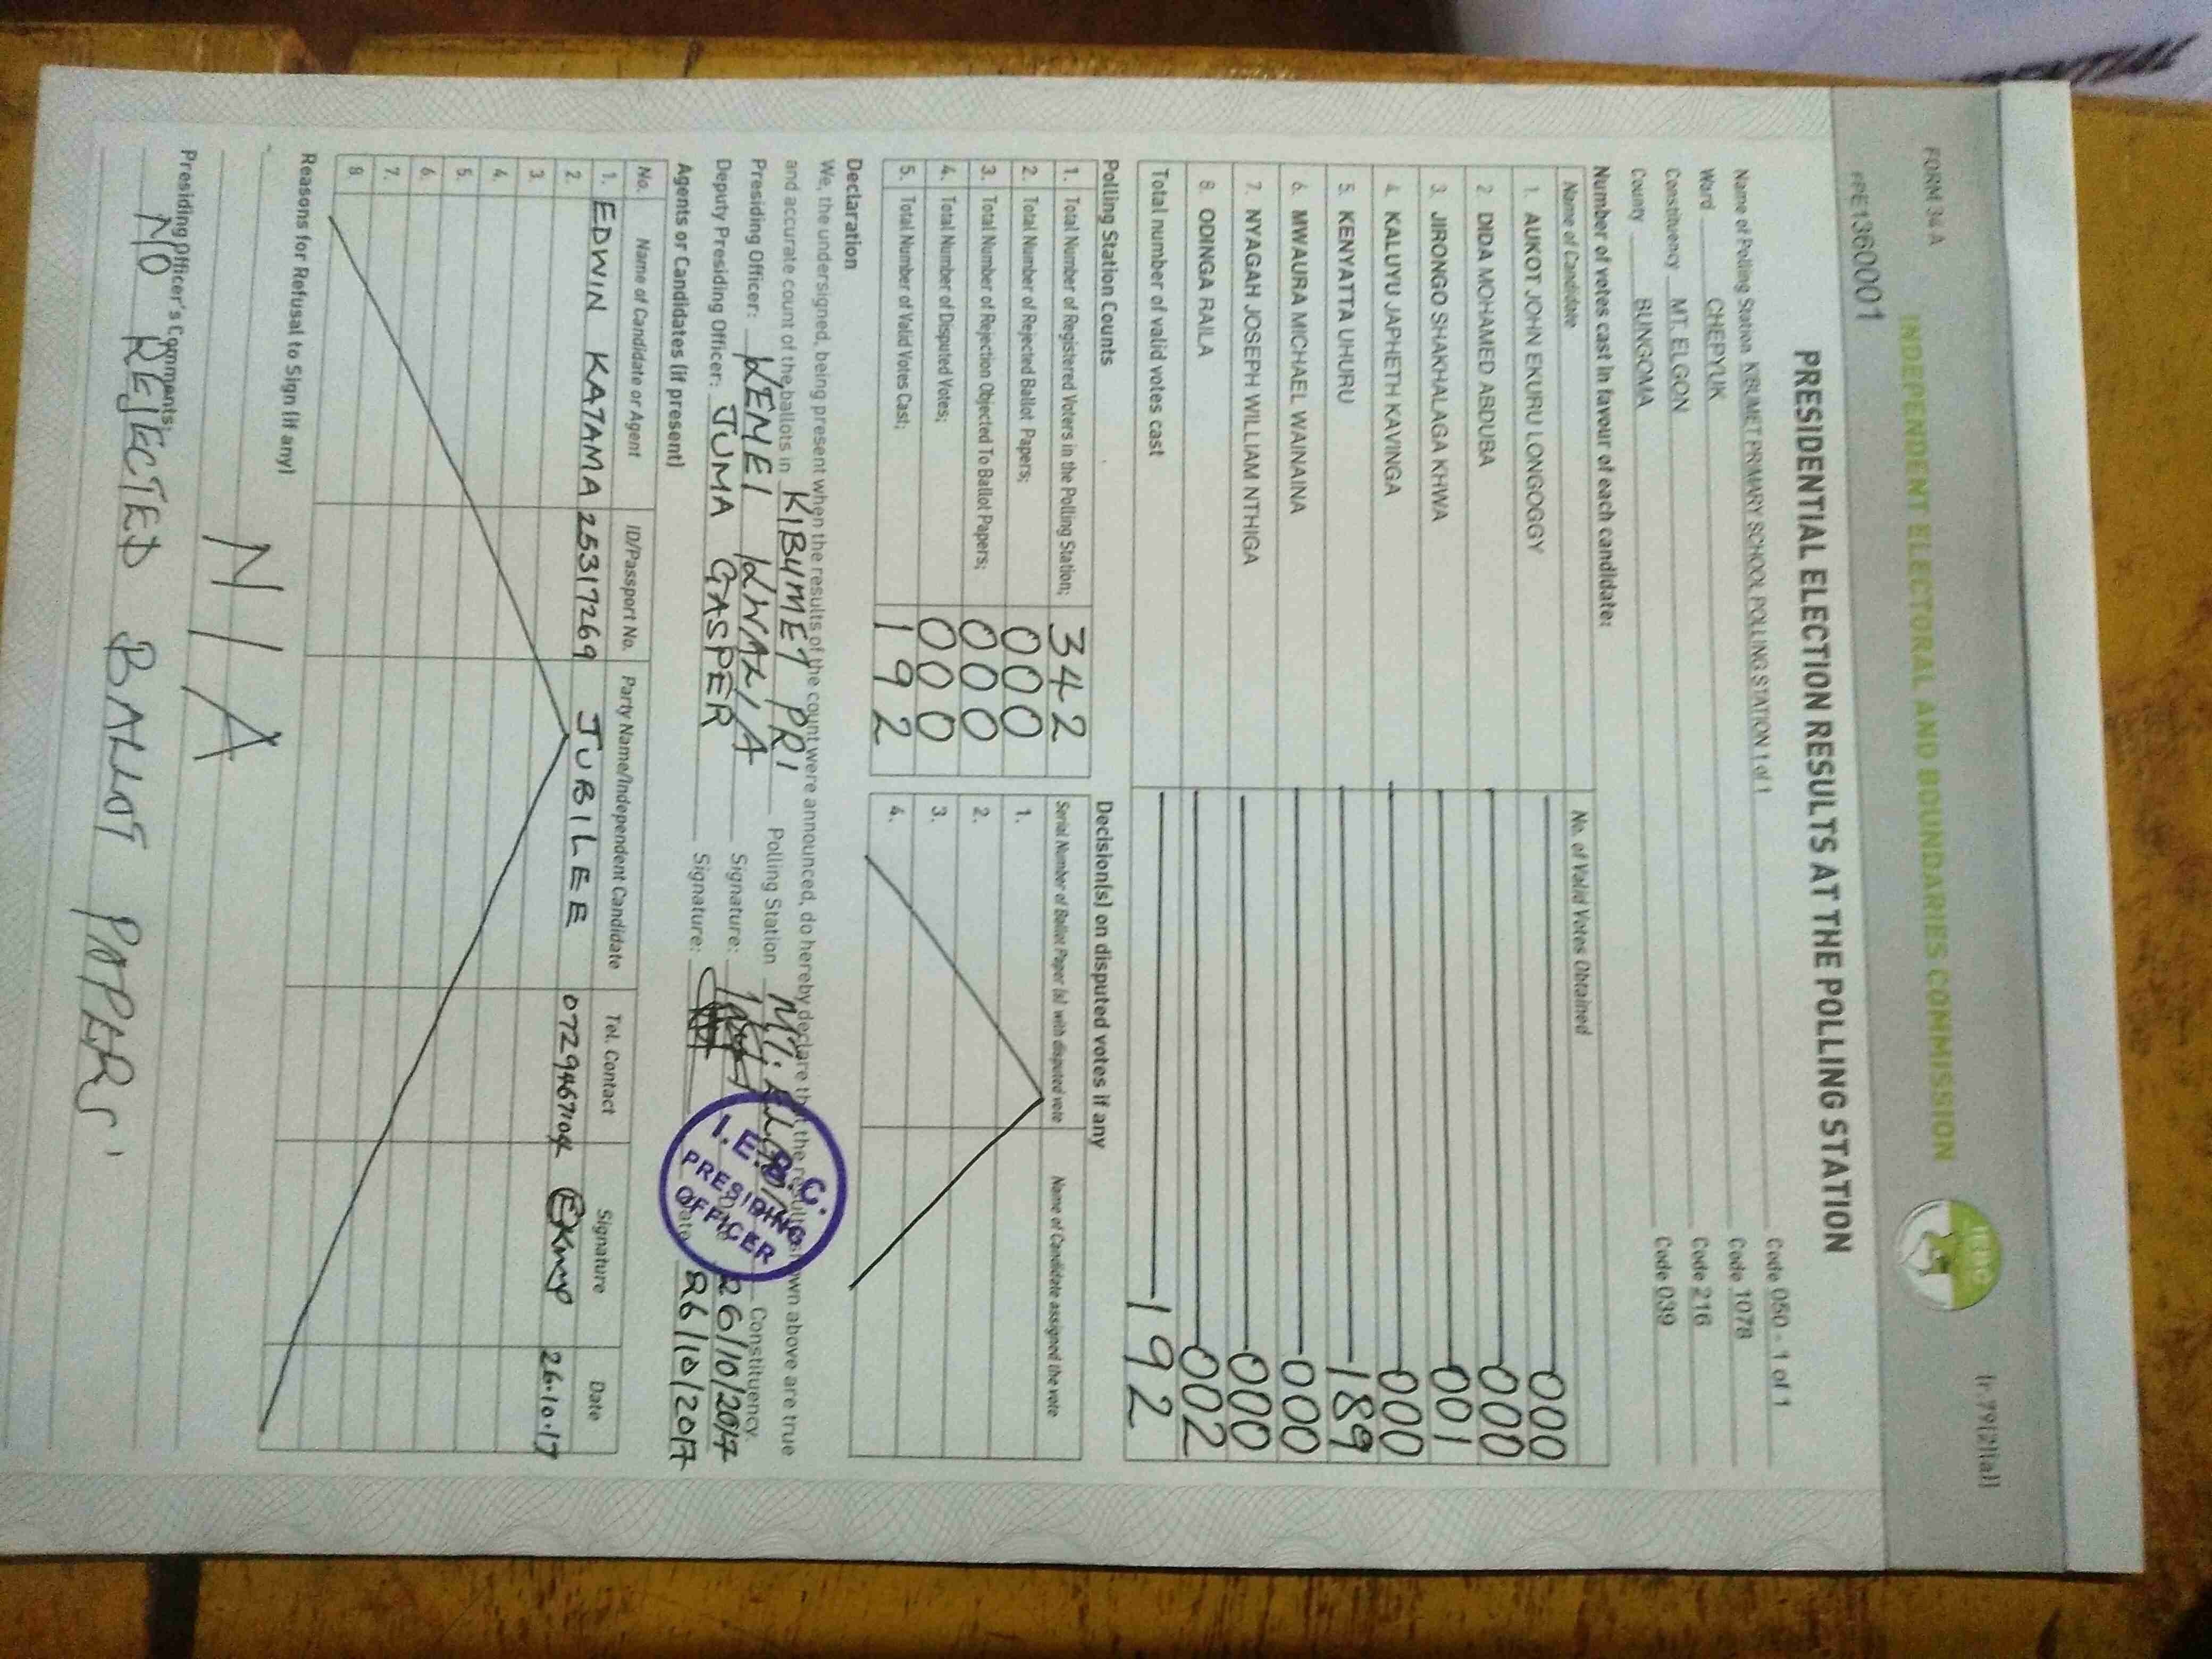 FORM 34 A
(r.79(2)(a))
INDEPENDENT ELECTORAL AND BOUNDARIES COMMISSION
IEBC
PRESIDENTIAL ELECTION RESULTS AT THE POLLING STATION
Name of Polling Station KIBUMET PRIMARY SCHOOL POLLING STATION 1 of 1 Code 050 - 1 of 1
Ward CHEPYUK Code 1078
Constituency MT. ELGON Code 216
County BUNGOMA Code 039
Number of votes cast in favour of each candidate:
Name of Candidate No. of Valid Votes Obtained
1. AUKOT JOHN EKURU LONGOGGY 000
2. DIDA MOHAMED ABDUBA 000
3. JIRONGO SHAKHALAGA KHWA 001
4. KALUYU JAPHETH KAVINGA 000
5. KENYATTA UHURU 189
6. MWAURA MICHAEL WAINAINA 000
7. NYAGAH JOSEPH WILLIAM NTHIGA 000
8. ODINGA RAILA 002
Total number of valid votes cast 192
Polling Station Counts
1. Total Number of Registered Voters in the Polling Station; 342
2. Total Number of Rejected Ballot Papers; 000
3. Total Number of Rejection Objected To Ballot Papers; 000
4. Total Number of Disputed Votes; 000
5. Total Number of Valid Votes Cast; 192
Decision(s) on disputed votes if any
Serial Number of Ballot Paper (s) with disputed vote Name of Candidate assigned the vote
1.
2.
3.
4.
Declaration
We, the undersigned, being present when the results of the count were announced, do hereby declare that the results shown above are true
and accurate count of the ballots in KIBUMET PRI Polling Station MT. ELGON Constituency.
Presiding Officer: KEMEI KWALIA Signature: Date 26/10/2017
Deputy Presiding Officer: JUMA GASPER Signature: Date 26/10/2017
I.E.B.C.
PRESIDING
OFFICER
Agents or Candidates (if present)
No. Name of Candidate or Agent ID/Passport No. Party Name/Independent Candidate Tel. Contact Signature Date
1. EDWIN KATAMA 25317269 JUBILEE 0729467104 26.10.17
2.
3.
4.
5.
6.
7.
8
Reasons for Refusal to Sign (if any)
N/A
Presiding Officer's Comments:
NO REJECTED BALLOT PAPERS